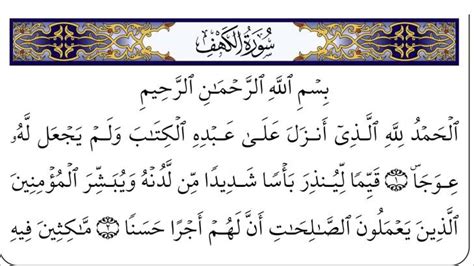 سُورَةُ الكَهْفِ
بِسْمِ اللَّهِ الرَّحْمَٰنِ الرَّحِيمِ
الْحَمْدُ لِلَّهِ الَّذِي أَنزَلَ عَلَىٰ عَبْدِهِ الْكِتَابَ وَلَمْ يَجْعَل لَّهُ
عِوَجًا ١ قَيِّمًا لِّيُنذِرَ بَأْسًا شَدِيدًا مِّن لَّدُنْهُ وَيُبَشِّرَ الْمُؤْمِنِينَ
الَّذِينَ يَعْمَلُونَ الصَّالِحَاتِ أَنَّ لَهُمْ أَجْرًا حَسَنًا ٢ مَّاكِثِينَ فِيهِ